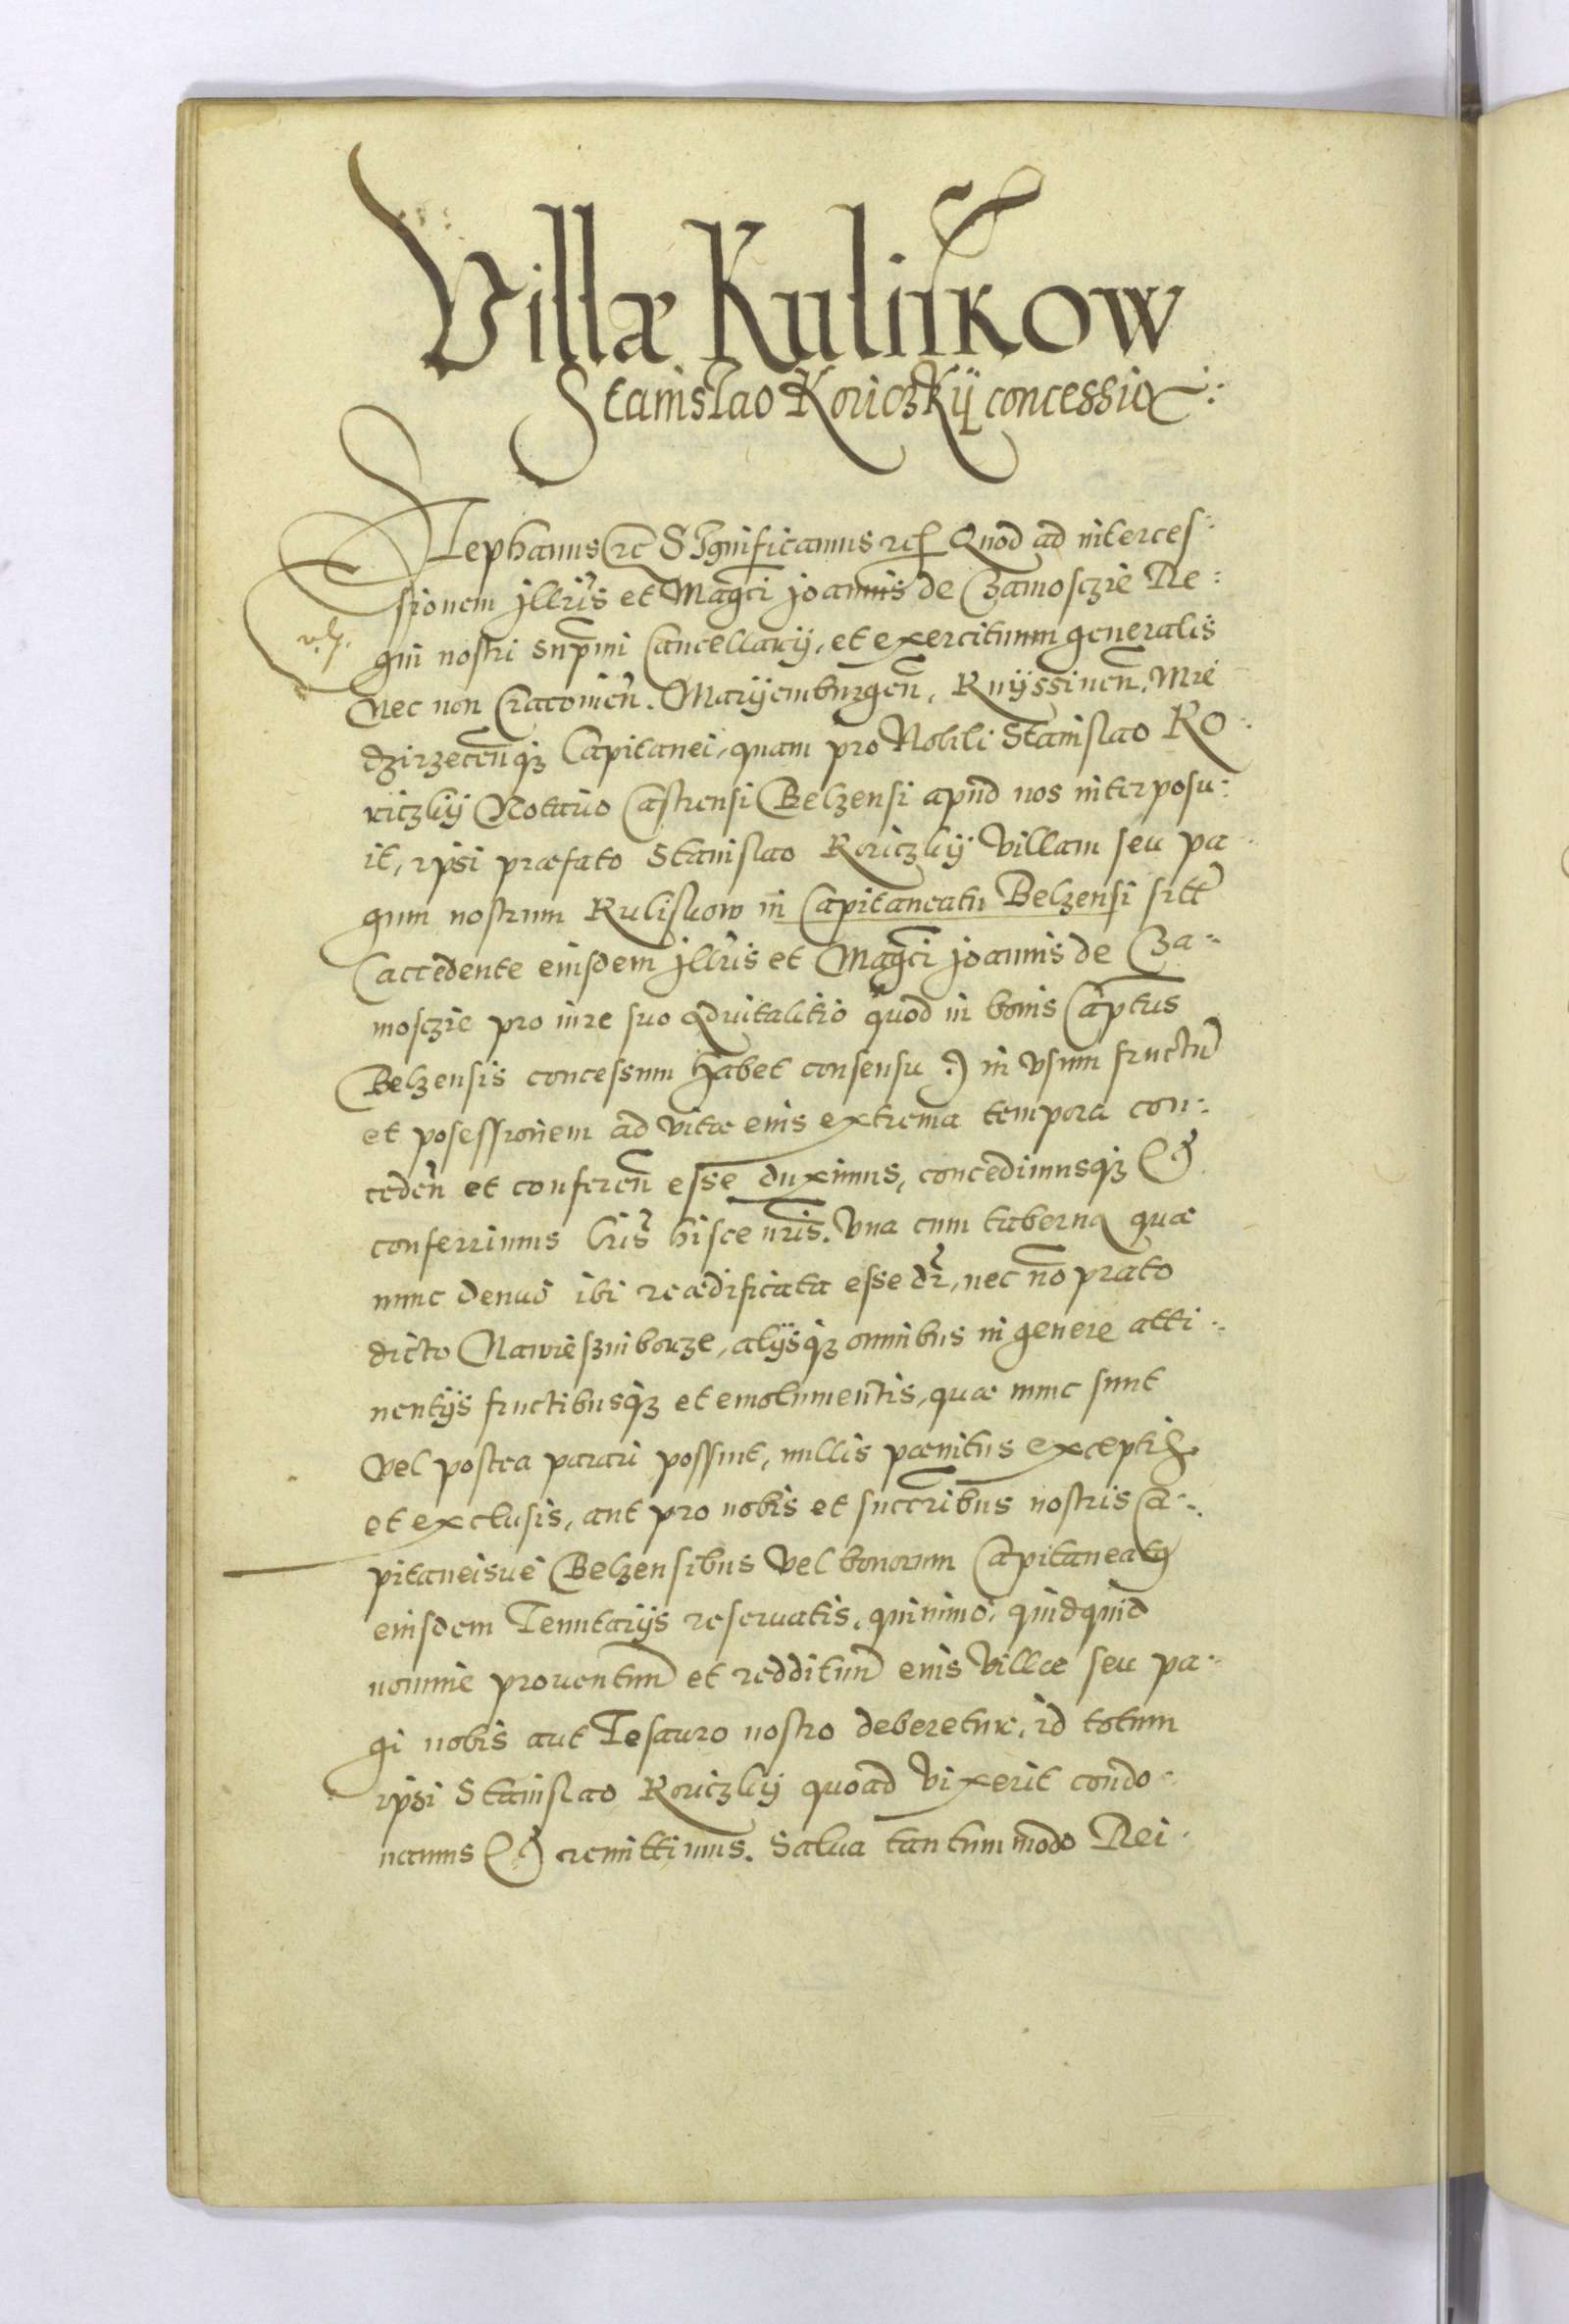 Villæ Kuliskow
Stanislao Koriczkij concessio
Stephanus etc Significamus etc Quod ad interces-
sionem Jllris et Magci Joannis de Czamosczie Re-
gni nostri supmi Cancellarij, et exercituum generalis
Nec non Cracovien. Marijemburgen, Knijssinen. Mie
dzirzecenqz Capitanei, quam pro Nobili Stanislao Ko-
riczkij Notario Castrensi Belzensi apud nos interposu-
it, ipsi præfato Stanislao Koriczkij villam seu pa-
gum nostrum Kuliskow in Capitaneatu Belzensi sitt
(accedente eiusdem Jllris et Magci Joannis de Cza-
mosczie pro iure suo advitalitio quod in bonis Captus
Belzensis concessum habet consensu) in vsum fructu
et posessionem ad vitæ eius extrema tempora con-
ceden et conferen esse duximus, concedimusqz et
conferrimus lris hisce nris. Vna cum taberna quæ
nunc denuo ibi reædificata esse dr, nec no prato
dicto Nawieszniborze, alijsqz omnibus in genere atti-
nentijs fructibusqz et emolumentis, quæ nunc sunt
vel postea parari possint, nullis pænitus exceptis
et exclusis, aut pro nobis et succribus nostris Ca-
pitaneisue Belzensibus vel bonorum Capitaneatus
eiusdem Tenutarijs reseruatis, quinimo, quidquid
nomine prouentum et reddituum eius villæ seu pa-
gi nobis aut Tesauro nostro deberetur, id totum
ipsi Stanislao Koriczkij quoad vixerit condo-
namus et remittimus. Salua tantummodo Rei-